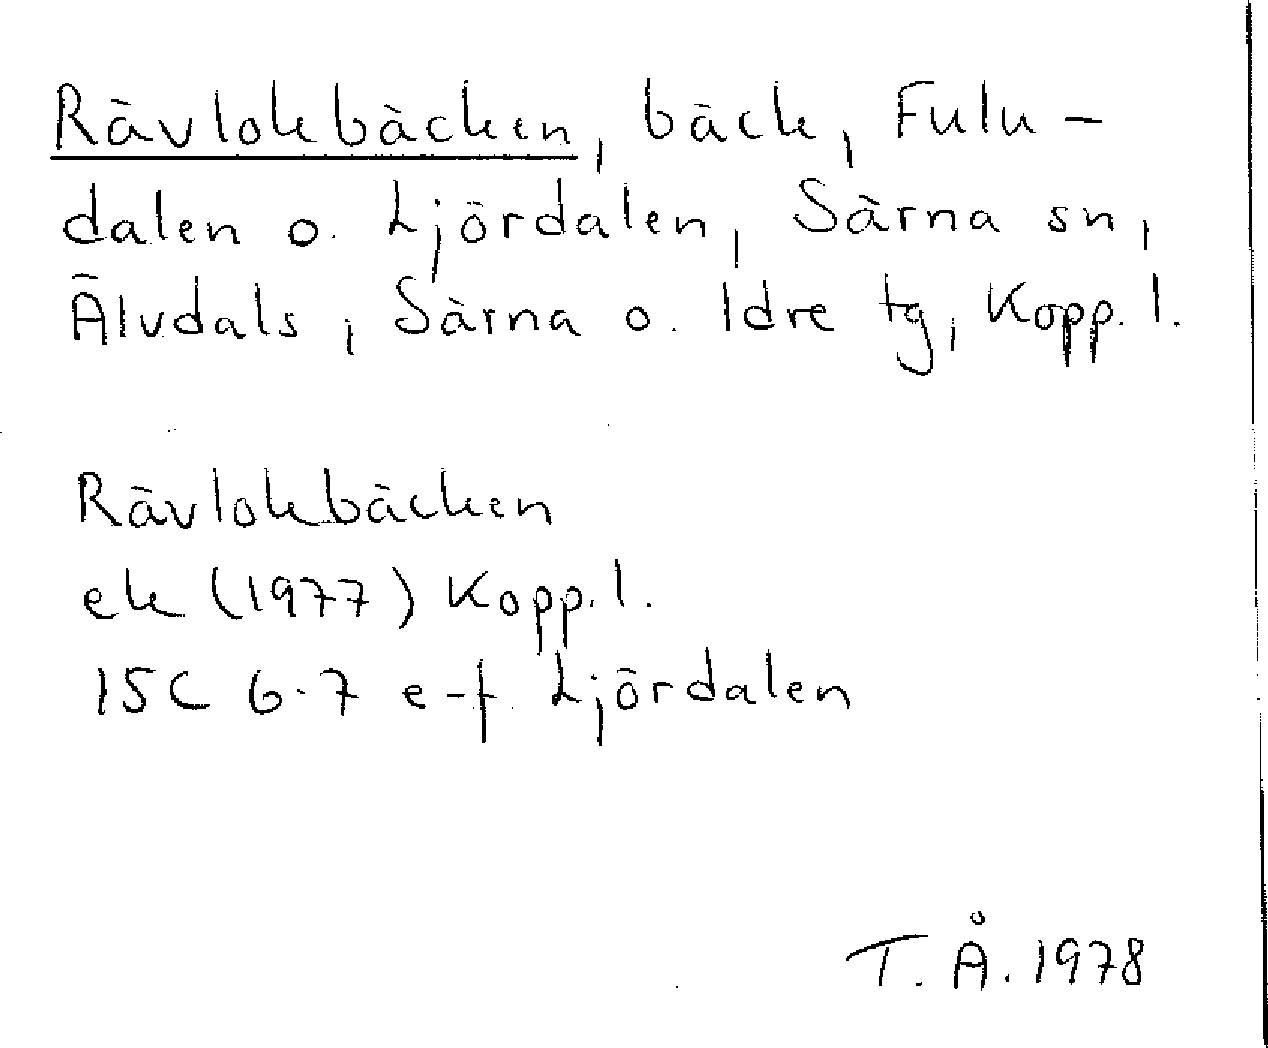 Rävlokbäcken, bäck, Fulu-
dalen o. Ljördalen, Särna sn,
Älvdals, Särna o. Idre tg, Kopp. l.
Rävlokbäcken
ek (1977) Kopp. l.
15C 6-7 e-f Ljördalen
T. Å. 1978